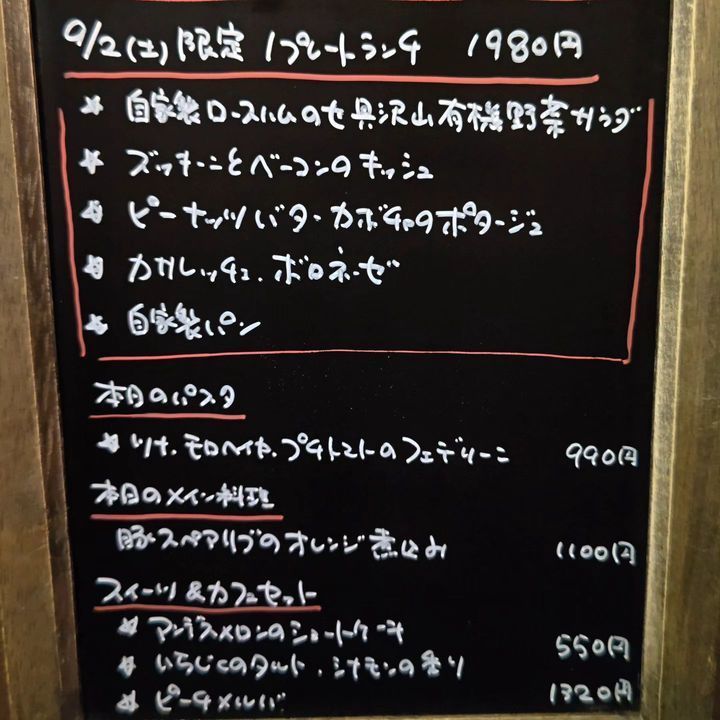 9/2(土)限定 1プレートランチ 1980円
☆ 自家製ロースハムのせ具沢山有機野菜サラダ
☆ ズッキーニとベーコンのキッシュ
☆ ピーナッツバターカボチャのポタージュ
☆ カサレッチェ.ボロネーゼ
☆ 自家製パン
本日のパスタ
☆ ツナ.モロヘイヤ.プチトマトのフェデリーニ 990円
本日のメイン料理
豚スペアリブのオレンジ煮込み 1100円
スイーツ&カフェセット
☆ アンデスメロンのショートケーキ 550円
☆ いちじくのタルト.シナモンの香り
☆ ピーチメルバ 1320円